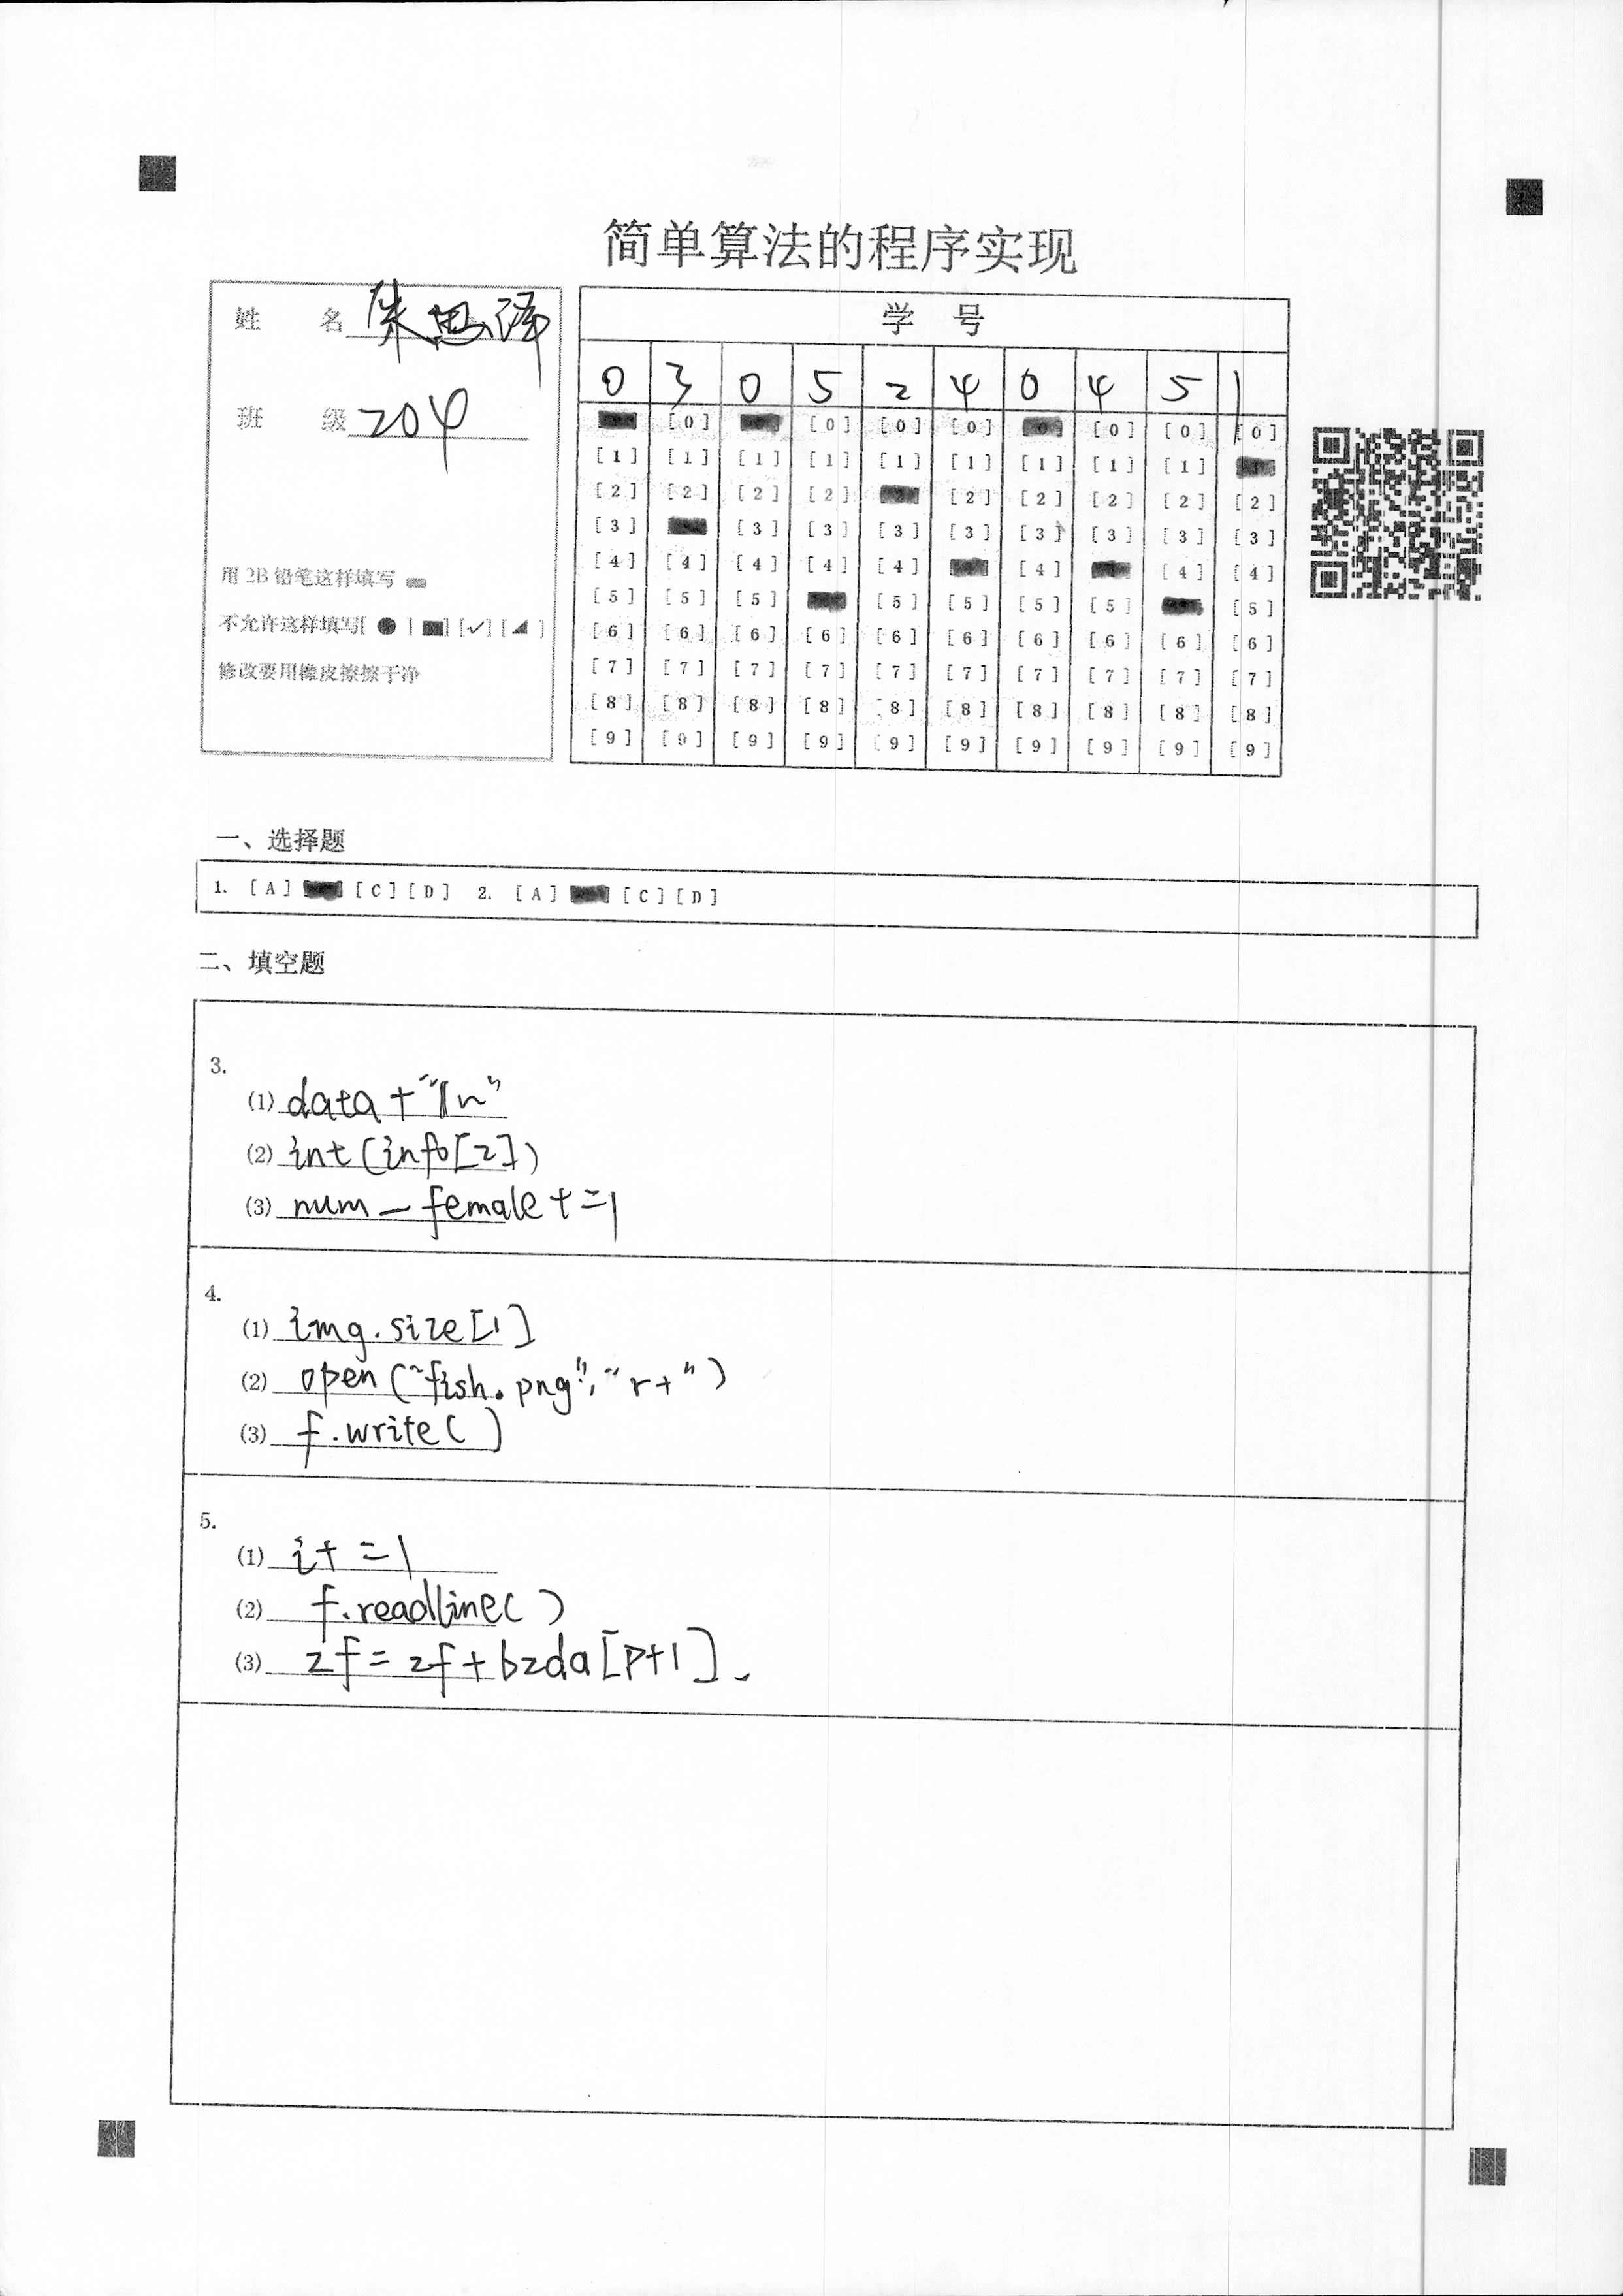 简单算法的程序实现
姓 名 朱思泽
班 级 204
用 2B 铅笔这样填写
不允许这样填写[ ● ] [■] [✓] [◢ ]
修改要用橡皮擦擦干净
学 号
0 3 0 5 2 4 0 4 5 1
[0] [0] [0] [0] [0] [0] [0]
[1] [1] [1] [1] [1] [1] [1] [1] [1]
[2] [2] [2] [2] [2] [2] [2] [2] [2] [2]
[3] [3] [3] [3] [3] [3] [3] [3] [3]
[4] [4] [4] [4] [4] [4] [4] [4]
[5] [5] [5] [5] [5] [5] [5] [5]
[6] [6] [6] [6] [6] [6] [6] [6] [6] [6]
[7] [7] [7] [7] [7] [7] [7] [7] [7] [7]
[8] [8] [8] [8] [8] [8] [8] [8] [8] [8]
[9] [9] [9] [9] [9] [9] [9] [9] [9] [9]
一、选择题
1. [A] [C] [D] 2. [A] [C] [D]
二、填空题
3.
(1) data + "\n"
(2) int(info[2])
(3) num_female+=1
4.
(1) img.size[1]
(2) open("fish.png","r+")
(3) f.write( )
5.
(1) i+=1
(2) f.readline( )
(3) zf=zf+bzda[p+1]